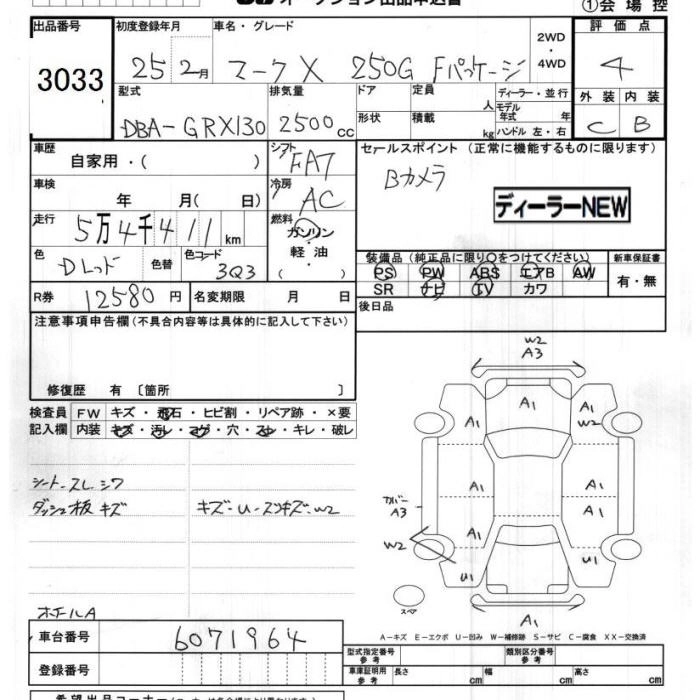 ①会場控
出品番号
3033
初度登録年月
25 2月
車名・グレード
マークX 250G Fパッケージ
2WD
・
4WD
評価点
4
型式
DBA-GRX130
排気量
2500cc
ドア
定員
人
ディーラー・並行
モデル
年式 年
形状
積載
kg
ハンドル 左・右
外装 内装
C B
車歴
自家用・( )
シフト
FAT
セールスポイント (正常に機能するものに限ります)
Bカメラ
ディーラーNEW
車検
年 月( 日)
冷房
AC
走行
5万4千411km
燃料
ガソリン
・
軽油
( )
色
Dレッド
色替
色コード
3Q3
装備品 (純正品に限り○をつけてください)
新車保証書
PS PW ABS エアB AW
有・無
SR ナビ TV カワ
R券
12580円
名変期限 月 日
後日品
注意事項申告欄 (不具合内容等は具体的に記入して下さい)
修復歴 有 [箇所 ]
検査員 FW キズ・飛石・ヒビ割・リペア跡・×要
記入欄 内装 キズ・汚レ・コゲ・穴・スレ・キレ・破レ
シートスレ シワ
ダッシュ板キズ キズ-U-スリキズ-W2
ホイールA
W2
A3
A1
A1 A1
W2
A1 A1
カバー
A3
A1
A1
W2
U1 U1
スペア
A1
A-キズ E-エクボ U-凹み W-補修跡 S-サビ C-腐食 XX-交換済
車台番号
6071964
登録番号
型式指定番号
参考
類別区分番号
参考
車庫証明用
参考
長さ cm 幅 cm 高さ cm